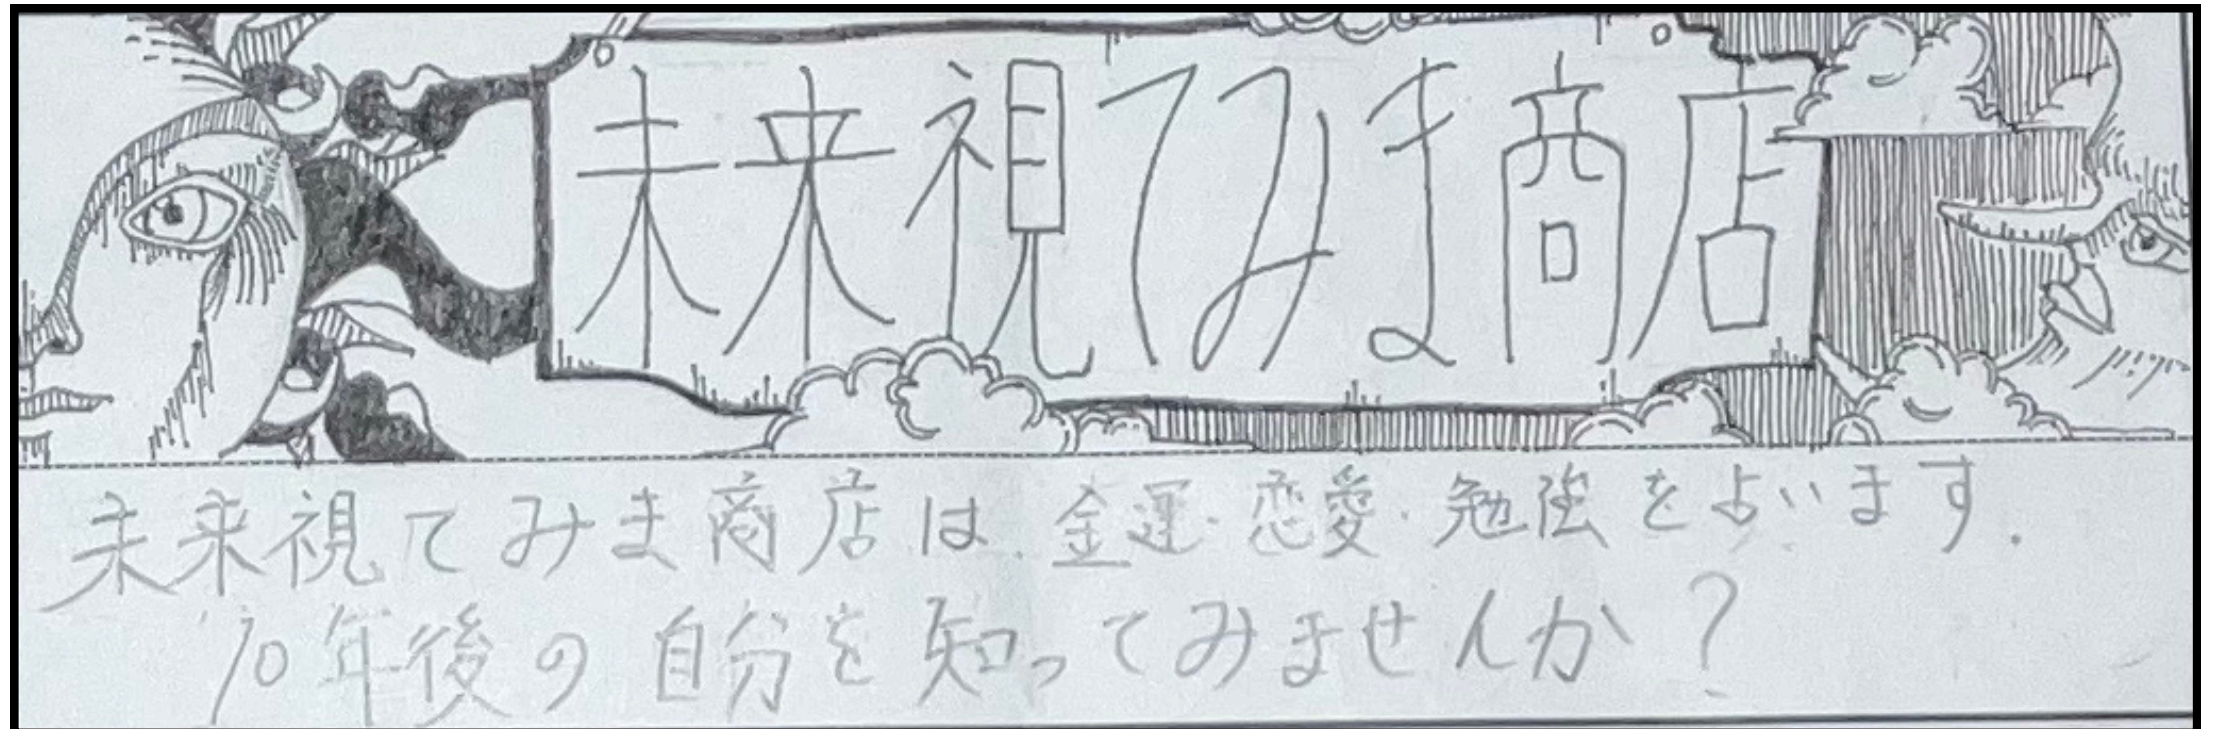 未来視てみま商店
未来視てみま商店は金運・恋愛・勉強を占います.
10年後の自分を知ってみませんか?